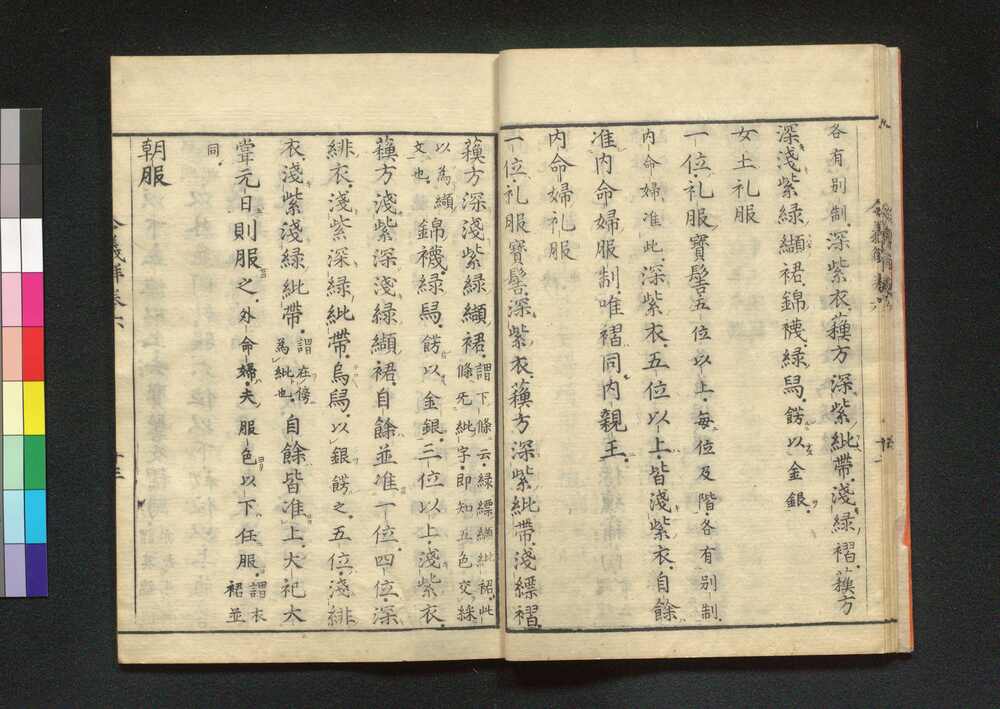 各有別制深紫衣蘓方深紫紕帶淺緑褶蘓方
深淺紫緑纈裙錦襪緑舄餝以金銀
女王礼服
一位礼服寶髻五位以上毎位及階各有別制
内命婦准此深紫衣五位以上皆淺紫衣自餘
准内命婦服制唯褶同内親王
内命婦礼服
一位礼服寶髻深紫衣蘓方深紫紕帶淺縹褶
蘓方深淺紫緑纈裙謂下條云緑縹纈紕裙此
條无紕字即知五色交綵
以為纈
文也錦襪緑舄餝以金銀三位以上淺紫衣
蘓方淺紫深淺緑纈裙自餘並准一位四位深
緋衣淺紫深緑紕帶烏舄以銀餝之五位淺緋
衣淺紫淺緑紕帶謂在傍
為紕也自餘皆准上大祀大
甞元日則服之外命婦夫服色以下任服謂衣
裙並
同
朝服
令義解卷六